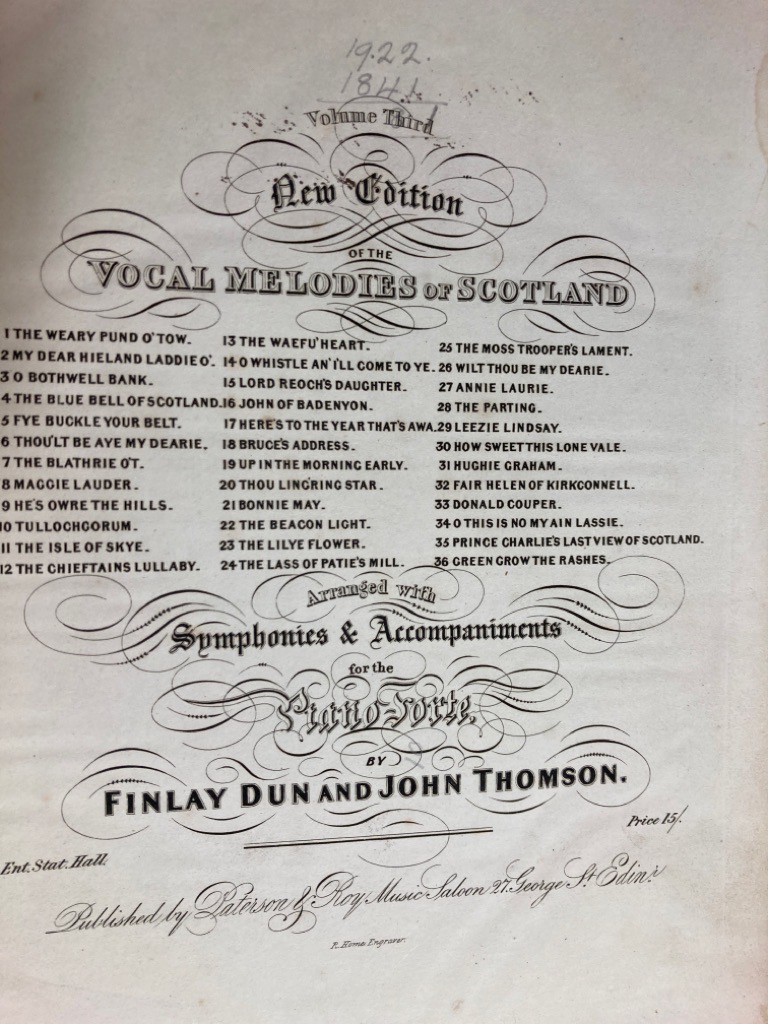 1922.
1841
Volume Third
New Edition
OF THE
VOCAL MELODIES OF SCOTLAND
1 THE WEARY PUND O'TOW.
2 MY DEAR HIELAND LADDIE O'.
3 O BOTHWELL BANK.
4 THE BLUE BELL OF SCOTLAND.
5 FYE BUCKLE YOUR BELT.
6 THOU'LT BE AYE MY DEARIE.
7 THE BLATHRIE O'T.
8 MAGGIE LAUDER.
9 HE'S OWRE THE HILLS.
10 TULLOCHGORUM.
11 THE ISLE OF SKYE.
12 THE CHIEFTAINS LULLABY.
13 THE WAEFU' HEART.
14 O WHISTLE AN' I'LL COME TO YE.
15 LORD REOCH'S DAUGHTER.
16 JOHN OF BADENYON.
17 HERE'S TO THE YEAR THAT'S AWA.
18 BRUCE'S ADDRESS.
19 UP IN THE MORNING EARLY.
20 THOU LING'RING STAR.
21 BONNIE MAY.
22 THE BEACON LIGHT.
23 THE LILYE FLOWER.
24 THE LASS OF PATIE'S MILL.
25 THE MOSS TROOPER'S LAMENT.
26 WILT THOU BE MY DEARIE.
27 ANNIE LAURIE.
28 THE PARTING.
29 LEEZIE LINDSAY.
30 HOW SWEET THIS LONE VALE.
31 HUGHIE GRAHAM.
32 FAIR HELEN OF KIRKCONNELL.
33 DONALD COUPER.
34 O THIS IS NO MY AIN LASSIE.
35 PRINCE CHARLIE'S LAST VIEW OF SCOTLAND.
36 GREEN GROW THE RASHES.
Arranged with
Symphonies & Accompaniments
for the
Piano-Forte.
BY
FINLAY DUN AND JOHN THOMSON.
Ent. Stat. Hall.
Price 15/.
Published by Paterson & Roy Music Saloon 27. George St. Edinr.
R. Home Engraver.